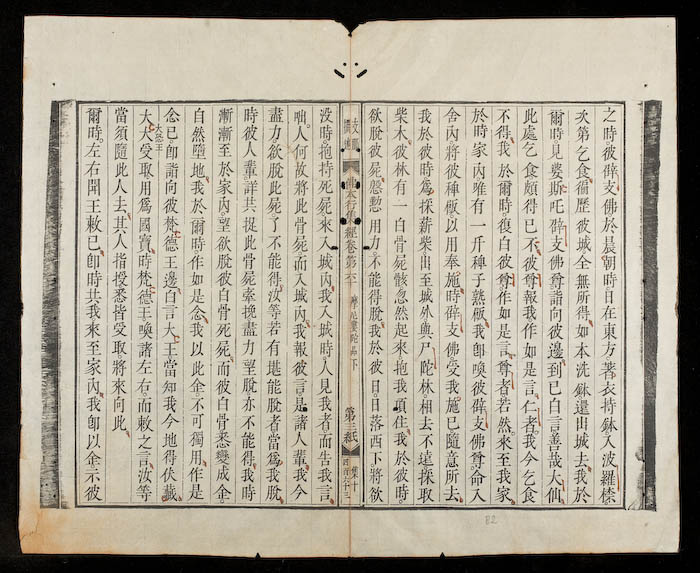 之時彼辟支佛於晨朝時日在東方著衣持鉢入波羅㮈
次第乞食徧歷彼城全無所得如本洗鉢還出城去我於
爾時見婆斯吒辟支佛尊詣向彼邊到已白言善哉大仙
此處乞食頗得已不彼尊報我作如是言仁者我今乞食
不得我於爾時復白彼尊作如是言尊者若然來至我家
於時家內唯有一斤稗子熟飯我卽喚彼辟支佛尊命入
舍內將彼稗飯以用奉施時辟支佛受我施已隨意所去
我於彼時爲採薪柴出至城外輿尸陀林相去不遠採取
柴木彼林有一白骨屍骸忽然起來抱我項住我於彼時
欲脫彼屍慇懃用力不能得脫我於彼日日落西下將欲
佛本行集經卷第六十
摩尼婁陀品下
第三紙
集十
沒時抱持死屍來入城內我入城時人見我者而告我言
咄人何故將此骨屍而入城內我報彼言是諸人輩我今
盡力欲脫此屍了不能得汝等若有堪能脫者當爲我脫
時彼人輩詳共捉此骨屍牽挽盡力望脫亦不能得我時
漸漸至於家內望欲脫彼白骨死屍而彼白骨悉變成金
自然墮地我於爾時作如是念我以此金不可獨用作是
念已卽詣向彼梵德王邊白言大王當知我今地得伏藏
大王受取用爲國寶時梵德王喚諸左右而敕之言汝等
當須隨此人去其人指授悉皆受取將來向此
爾時左右聞王敕已卽時共我來至家內我卽以金示彼
82